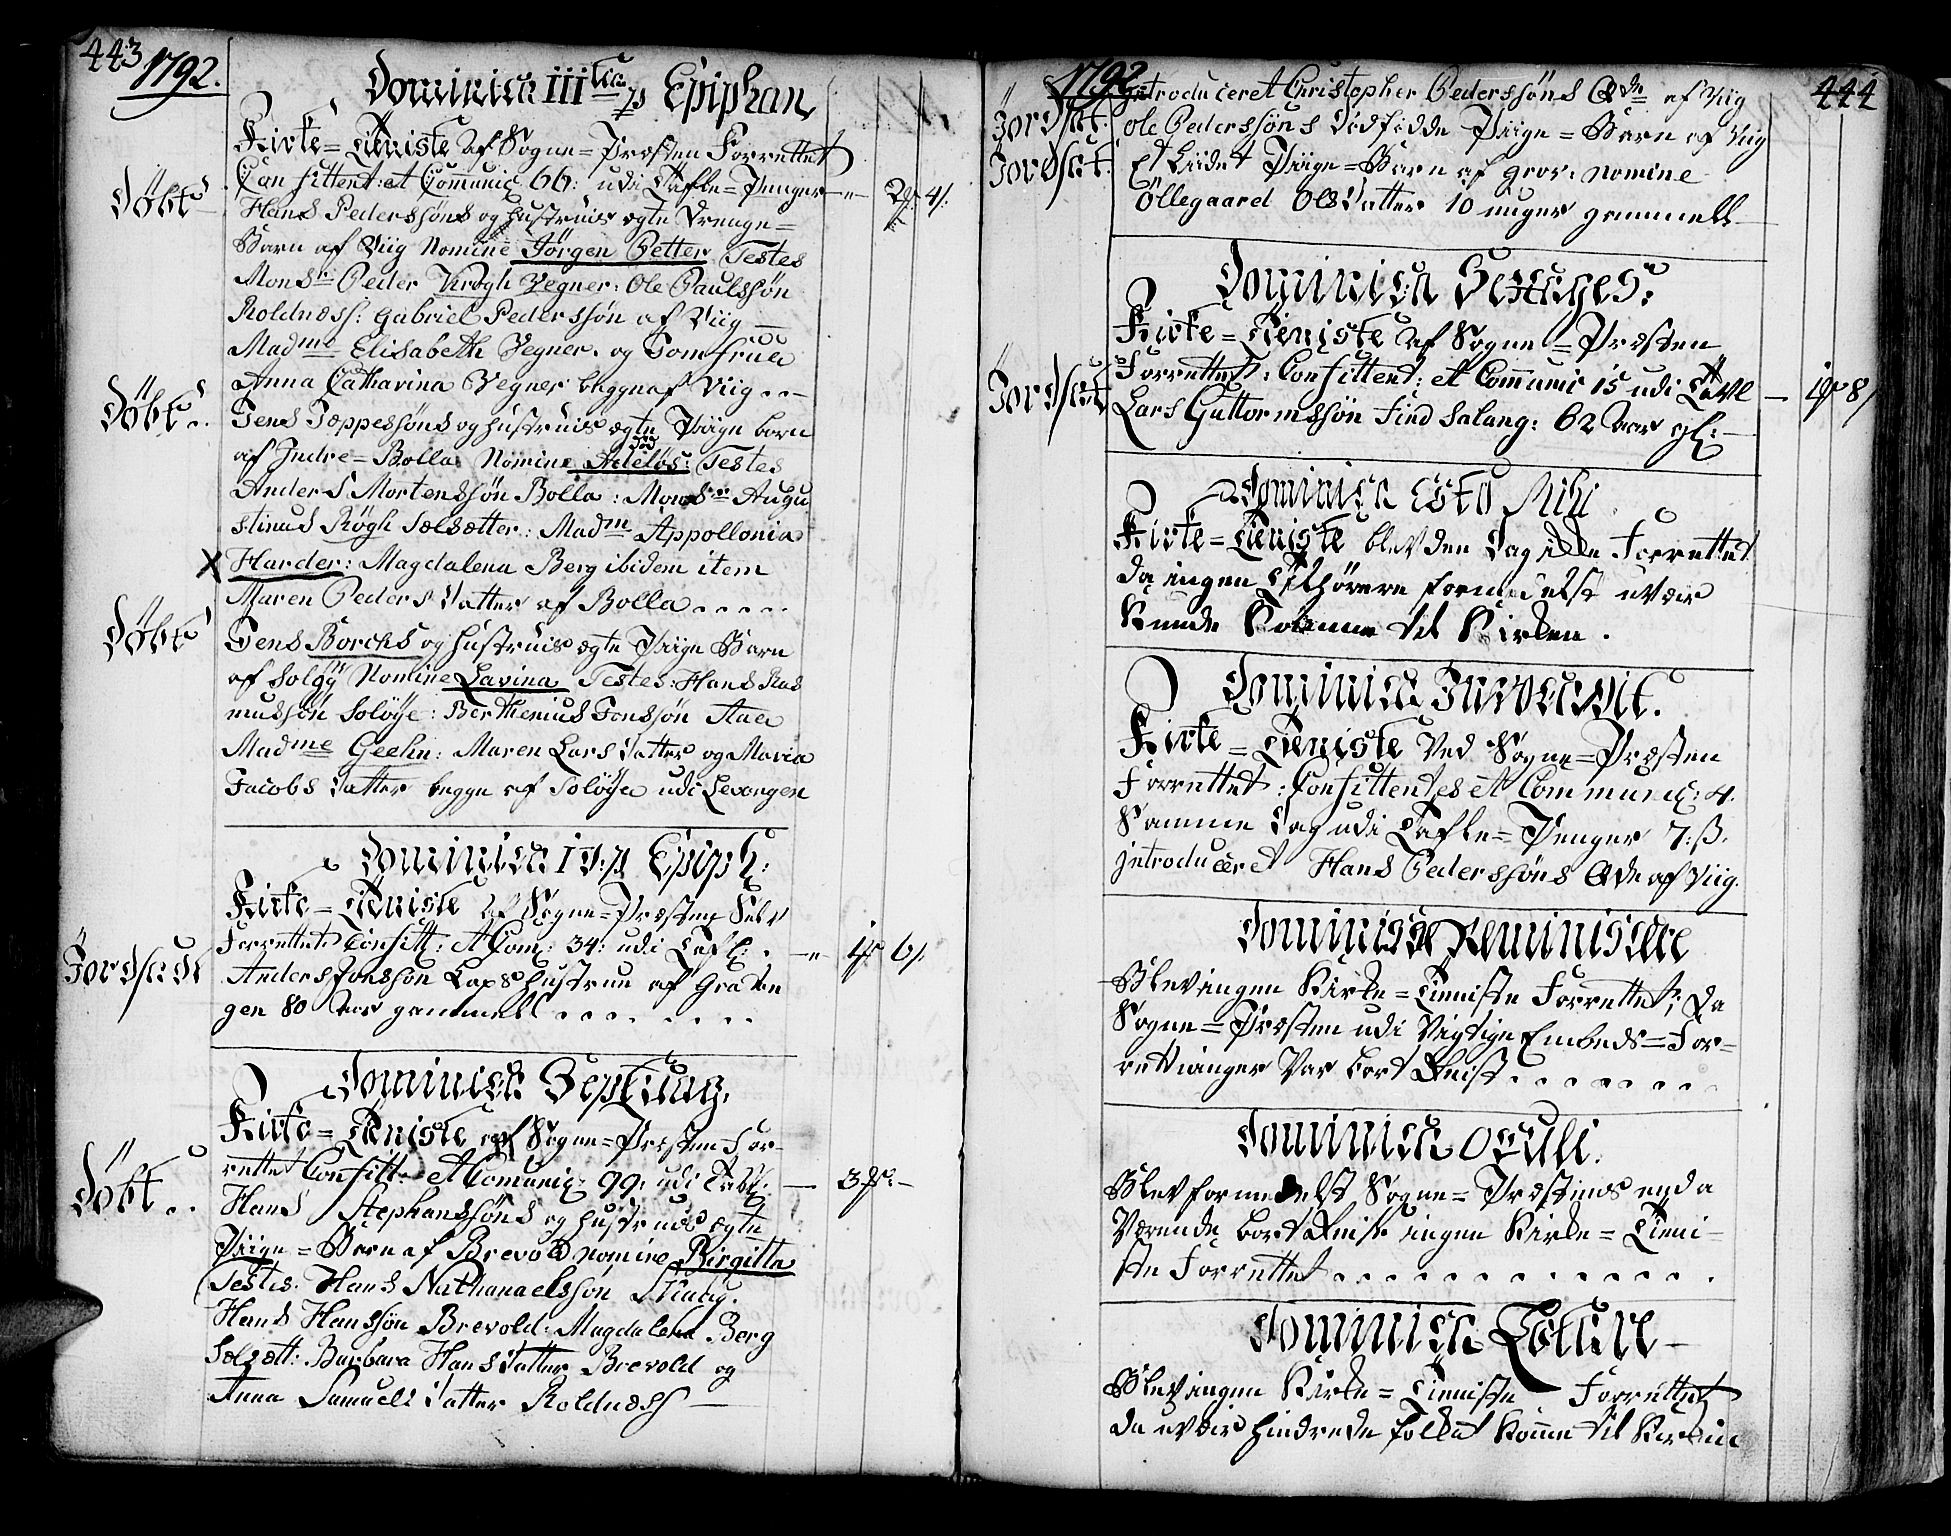 443
1792.
Dominica III tia p Epiphan
Kirke=Tieniste af Sogne=Præsten Forrettet
Confittent: et Communiq 66: udi Tafle=Penger — 2 4
Døbt
Hans Pederssøns og hustrues ægte Drenge=
Barn af Viig Nomine Jørgen Petter Testes
Monsr Peder Krogh Vegner: Ole Paulssøn
Roldnæss: Gabriel Pederssøn af Viig
Madme Elisabeth Vegner. og Jomfrue
Anna Catharina Vegner begge af Viig
Døbt
Jens Joppessøns og hustrues ægte Piige barn
af Indre=Bolla: Nomine Adeløs: Testes
død
Anders Mortenssøn Bolla: Monsr Augu
stinus Røgh Sælsætter: Madme Appollonia
X Harder: Magdalena Berg ibidem item
Maren Peders Datter af Bolla . . . . .
Døbt
Jens Borchs og hustrues ægte Piige Barn
af Soløy Nomine Lavina Testes: Hans Ras
mussøn Soløye: Berthenius Jonssøn Aaa
Madme Geehn: Maren Lars Datter og Maria
Jacobs Datter begge af Soløye udi Levangen
Dominica IV: p Epiph:
Kirke=Tieniste af Sogne=Præsten Selv
Forrettet Confitt: et Com: 34: udi Tafl: — 1 6
Jordfæstet
Anders Jonssøn Laps hustrue af Gratan
gen 80 Aar gammel . . . . . . .
Dominica Septuag.
Kirke=Tieniste af Sogne=Præsten For-
rettet Confitt: et Comuniq: 99: udi Tabl: — 3 —
Døbt . .
Hans Stephanssøns og hustrues ægte
Piige=Barn af Brevold nomine Birgitte
Testes: Hans Nathanaelssøn
Hans Hanssøn Brevold: Magdalena Berg
Sælsætt: Barbara Hans Datter Brevold og
Anna Samuels Datter Roldnæss —
1792
444
jntroduceret Christopher Pederssøns Qde af Viig
Jordfæt:
Ole Pederssøns Dødfødde Piige=Barn af Viig
Jordfæt:
Et Liidet Piige=Barn af Grov: nomine
Øllegaard Ols Datter 10 uuger gammell
Dominica Sexages:
Kirke=Tieniste af Sogne=Præsten
Forrettet: Confittent: et Communic 15 udi Tavl — 1 8
Jordfæt
Lars Guttormssøn Find Salang: 62 Aar gl:
Dominica Esto Mihi
Kirke=Tieniste blev den Dag ikke Forrettet
da ingen Tilhørere formedelst uveir
Kunde Komme til Kirken.
Dominica Invocavit.
Kirke=Tieniste Ved Sogne=Præsten
Forrettet: Confittentes et Communiq: 4.
Samme Dag udi Tafle=Penger 7: ß.
jntroduceret Hans Pederssøns Qde af Viig.
Dominica Reminiscere
Blev ingen Kirke=Tieniste Forrettet; Da
Sogne=Præsten udi Vigtige Embeds=For-
retninger Var bort Reist . . . . . . . .
Dominica Oculi.
Blev formedelst Sogne=Præstens enda
Værende bort Reist ingen Kirke=Tieni-
ste Forrettet . . . . . . . . . . . . .
Dominica Lætare
Blev ingen Kirke=Tieniste Forrettet
da uveir hindrede folket Komme til Kirken